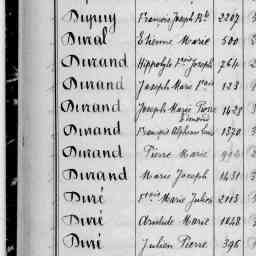 Dupuy François Joseph Bte 2207
Dural Etienne Marie 500
Durand Hippolyte Fois Joseph 764
Durand Joseph Marie Fois 123
Durand Joseph Marie Pierre 1428
Durand François Alphonse 1370
Durand Pierre Marie
Durand Marie Joseph 1431
Duré Fois Marie Julien 2113
Duré Aristide Marie 1048
Duré Julien Pierre 396